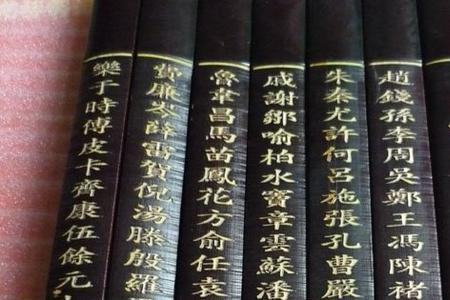 趙錢孫李周吳鄭王馮陳褚
朱秦尤許何呂施張孔曹嚴
戚謝鄒喻柏水竇章雲蘇潘
魯韋昌馬苗鳳花方俞任袁
費廉岑薛雷賀倪湯滕殷羅
樂于時傅皮卡齊康伍餘元